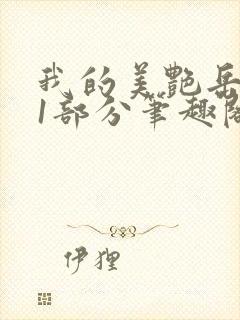 我的美艷岳
1部分笔趣阁
伊狸